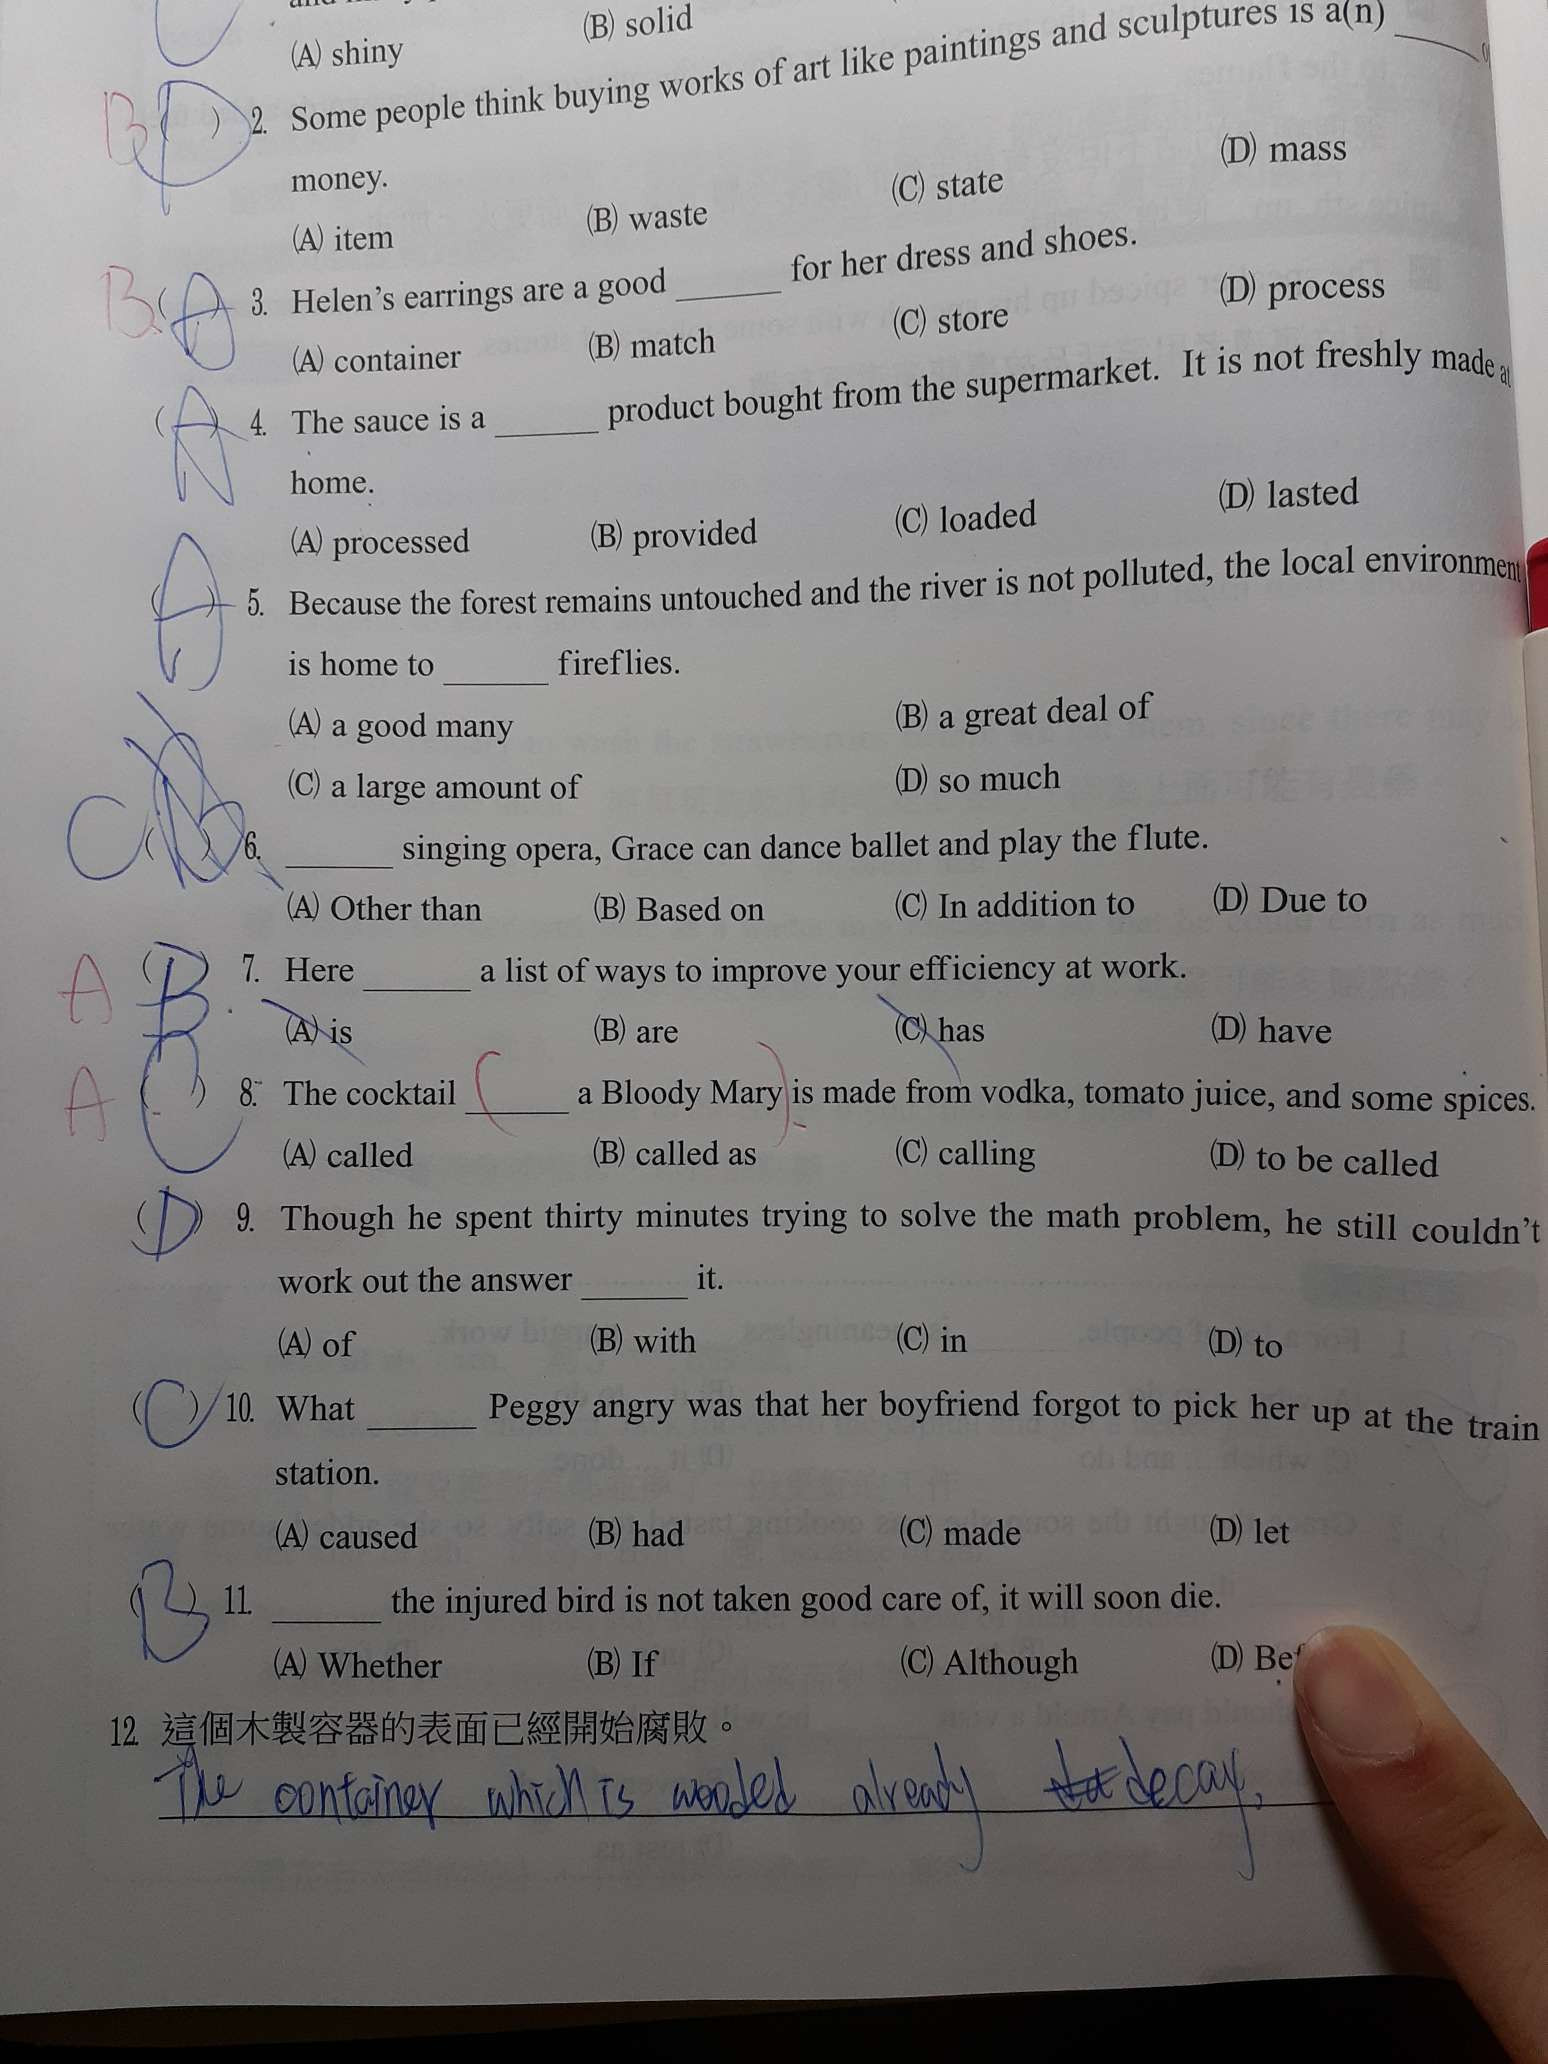 (A) shiny (B) solid
B D ( ) 2. Some people think buying works of art like paintings and sculptures is a(n) ______
money.
(A) item (B) waste (C) state (D) mass
B ( A ) 3. Helen's earrings are a good ______ for her dress and shoes.
(A) container (B) match (C) store (D) process
( A ) 4. The sauce is a ______ product bought from the supermarket. It is not freshly made at
home.
(A) processed (B) provided (C) loaded (D) lasted
( A ) 5. Because the forest remains untouched and the river is not polluted, the local environment
is home to ______ fireflies.
(A) a good many (B) a great deal of
(C) a large amount of (D) so much
C ( ) 6. ______ singing opera, Grace can dance ballet and play the flute.
(A) Other than (B) Based on (C) In addition to (D) Due to
A ( B ) 7. Here ______ a list of ways to improve your efficiency at work.
(A) is (B) are (C) has (D) have
A ( C ) 8. The cocktail ______ a Bloody Mary is made from vodka, tomato juice, and some spices.
(A) called (B) called as (C) calling (D) to be called
( D ) 9. Though he spent thirty minutes trying to solve the math problem, he still couldn't
work out the answer ______ it.
(A) of (B) with (C) in (D) to
( C ) 10. What ______ Peggy angry was that her boyfriend forgot to pick her up at the train
station.
(A) caused (B) had (C) made (D) let
( B ) 11. ______ the injured bird is not taken good care of, it will soon die.
(A) Whether (B) If (C) Although (D)
12. 這個木製容器的表面已經開始腐敗。
The container which is wooded already decay,